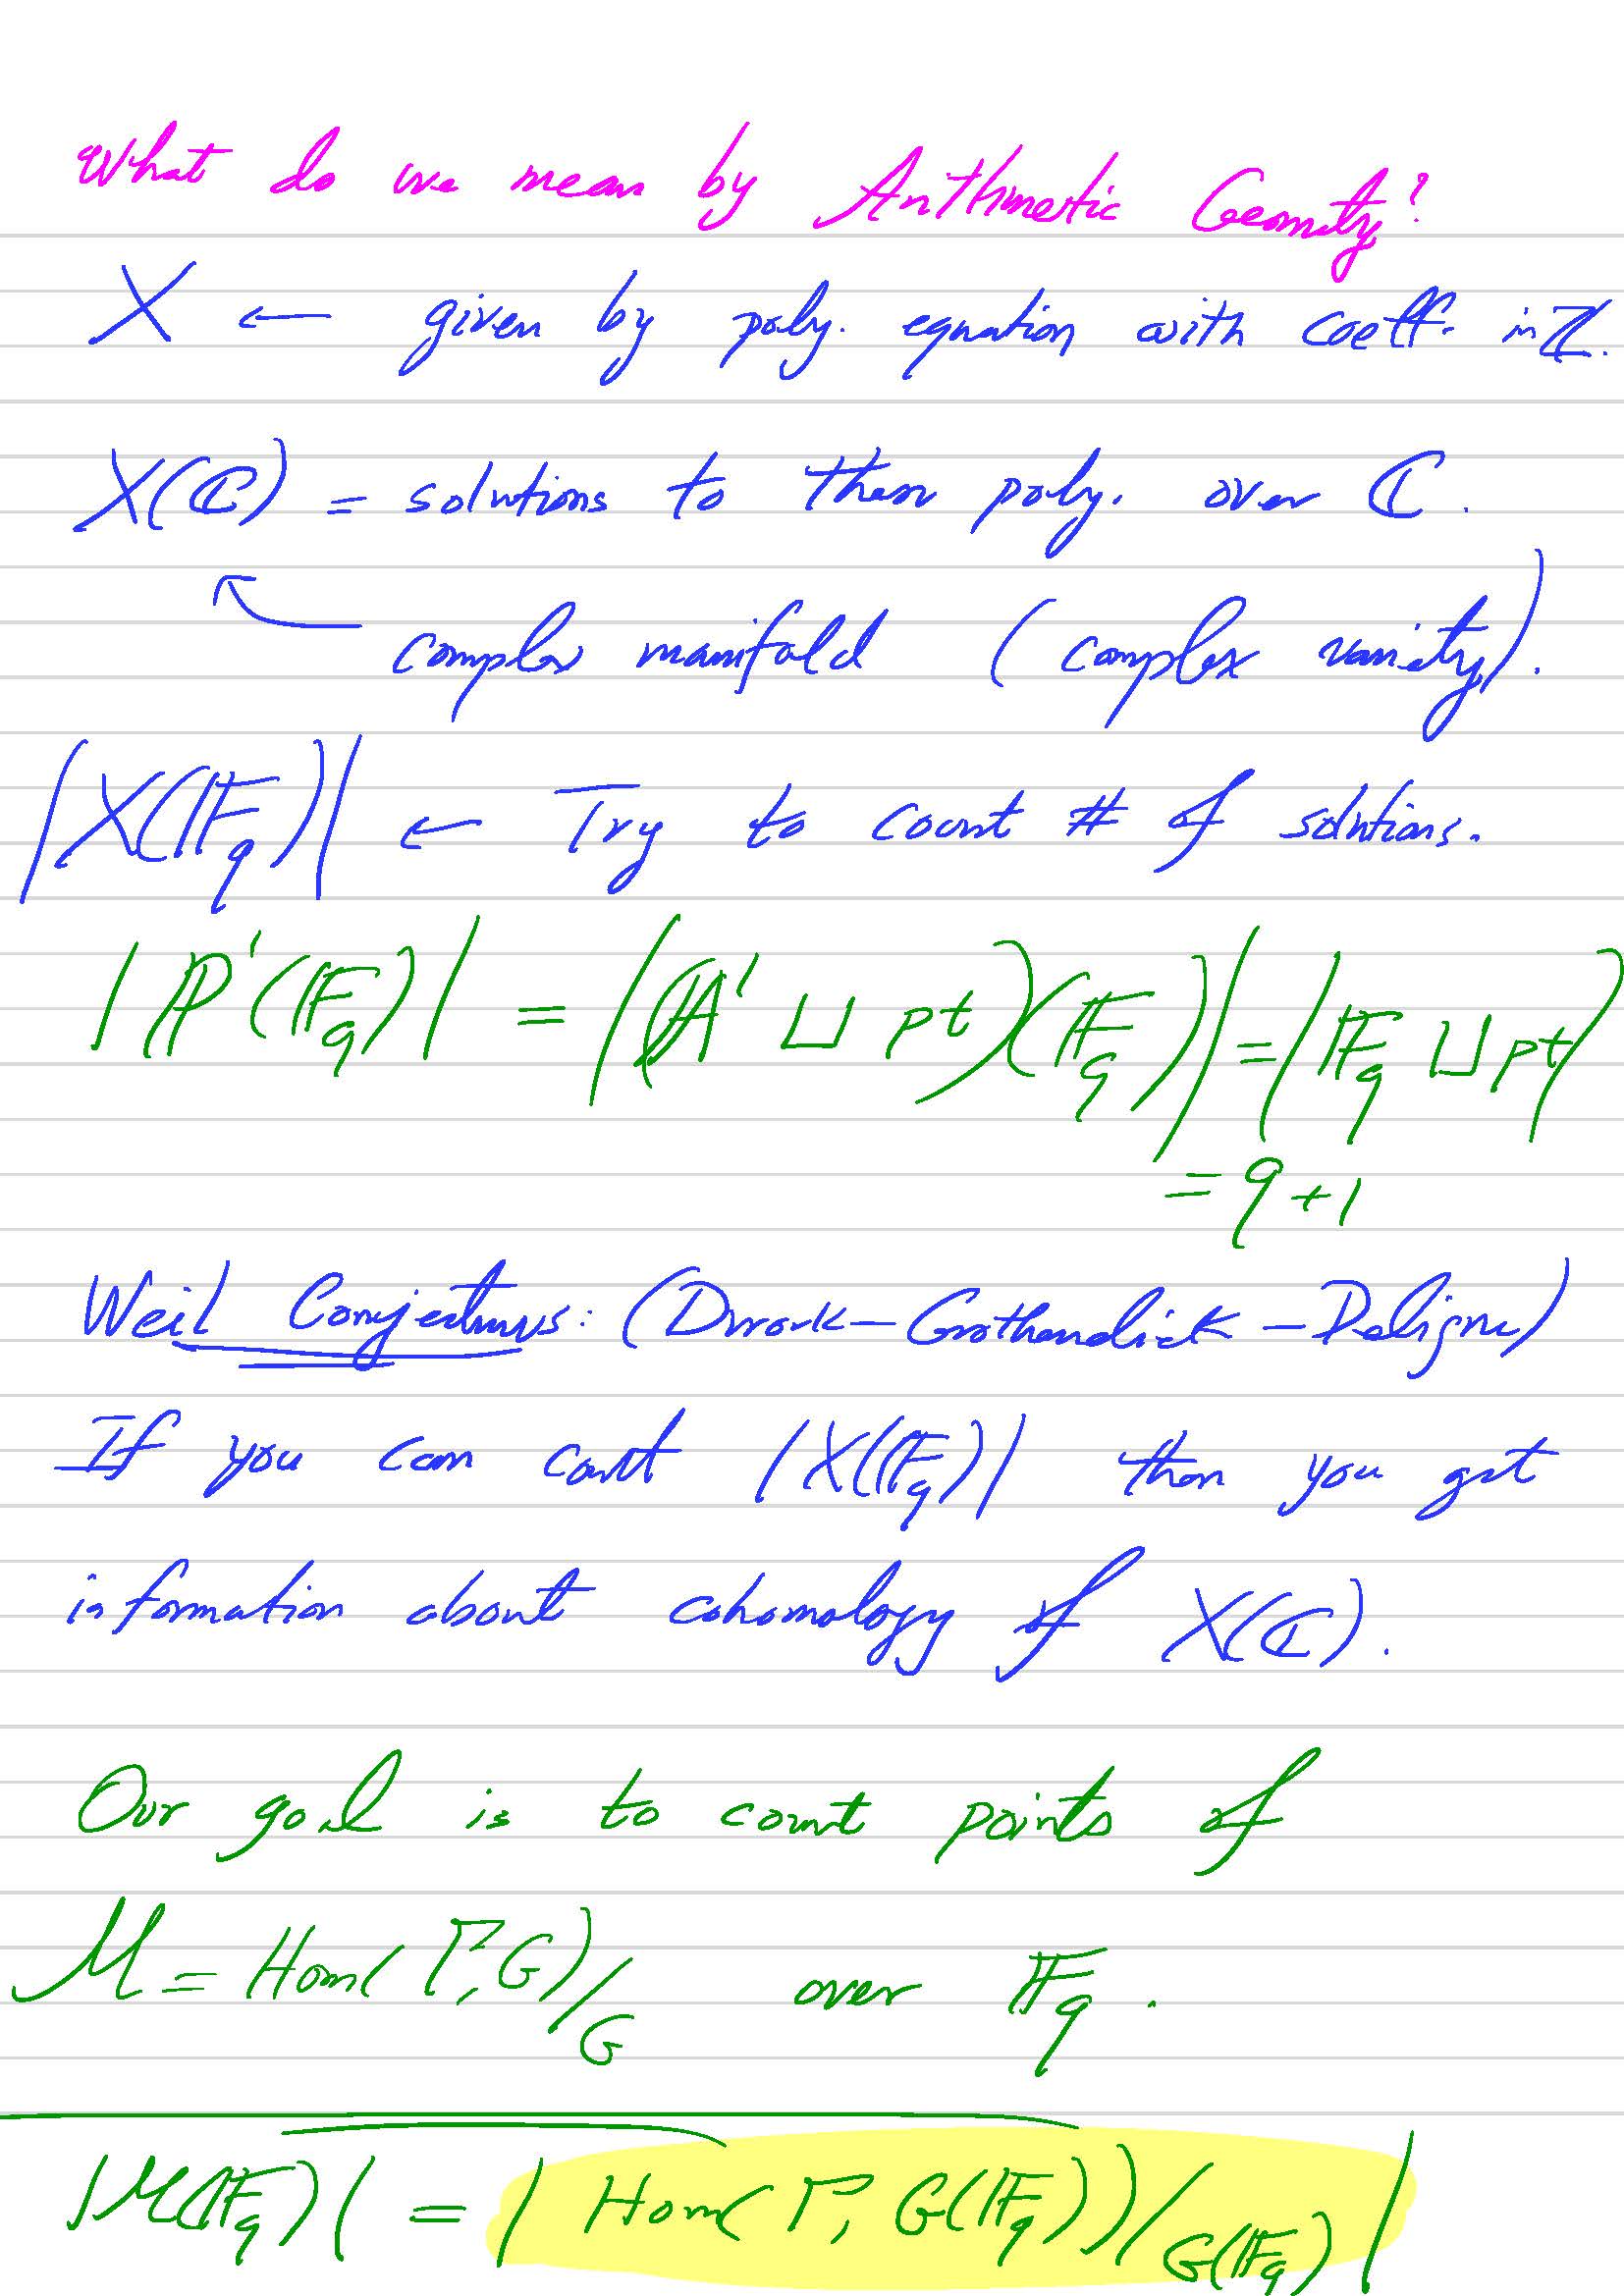 What do we mean by Arithmetic Geometry?
X ← given by poly. equation with coeff. in ℤ.
X(ℂ) = solutions to these poly. over ℂ.
complex manifold (complex variety).
|X(𝔽_q)| ← Try to count # of solutions.
|ℙ¹(𝔽_q)| = |(𝔸¹ ⊔ pt)(𝔽_q)| = |𝔽_q ⊔ pt|
= q + 1
Weil Conjectures: (Dwork–Grothendieck–Deligne)
If you can count |X(𝔽_q)| then you get
information about cohomology of X(ℂ).
Our goal is to count points of
M = Hom(Γ, G)/G over 𝔽_q.
|M(𝔽_q)| = |Hom(Γ, G(𝔽_q))/G(𝔽_q)|